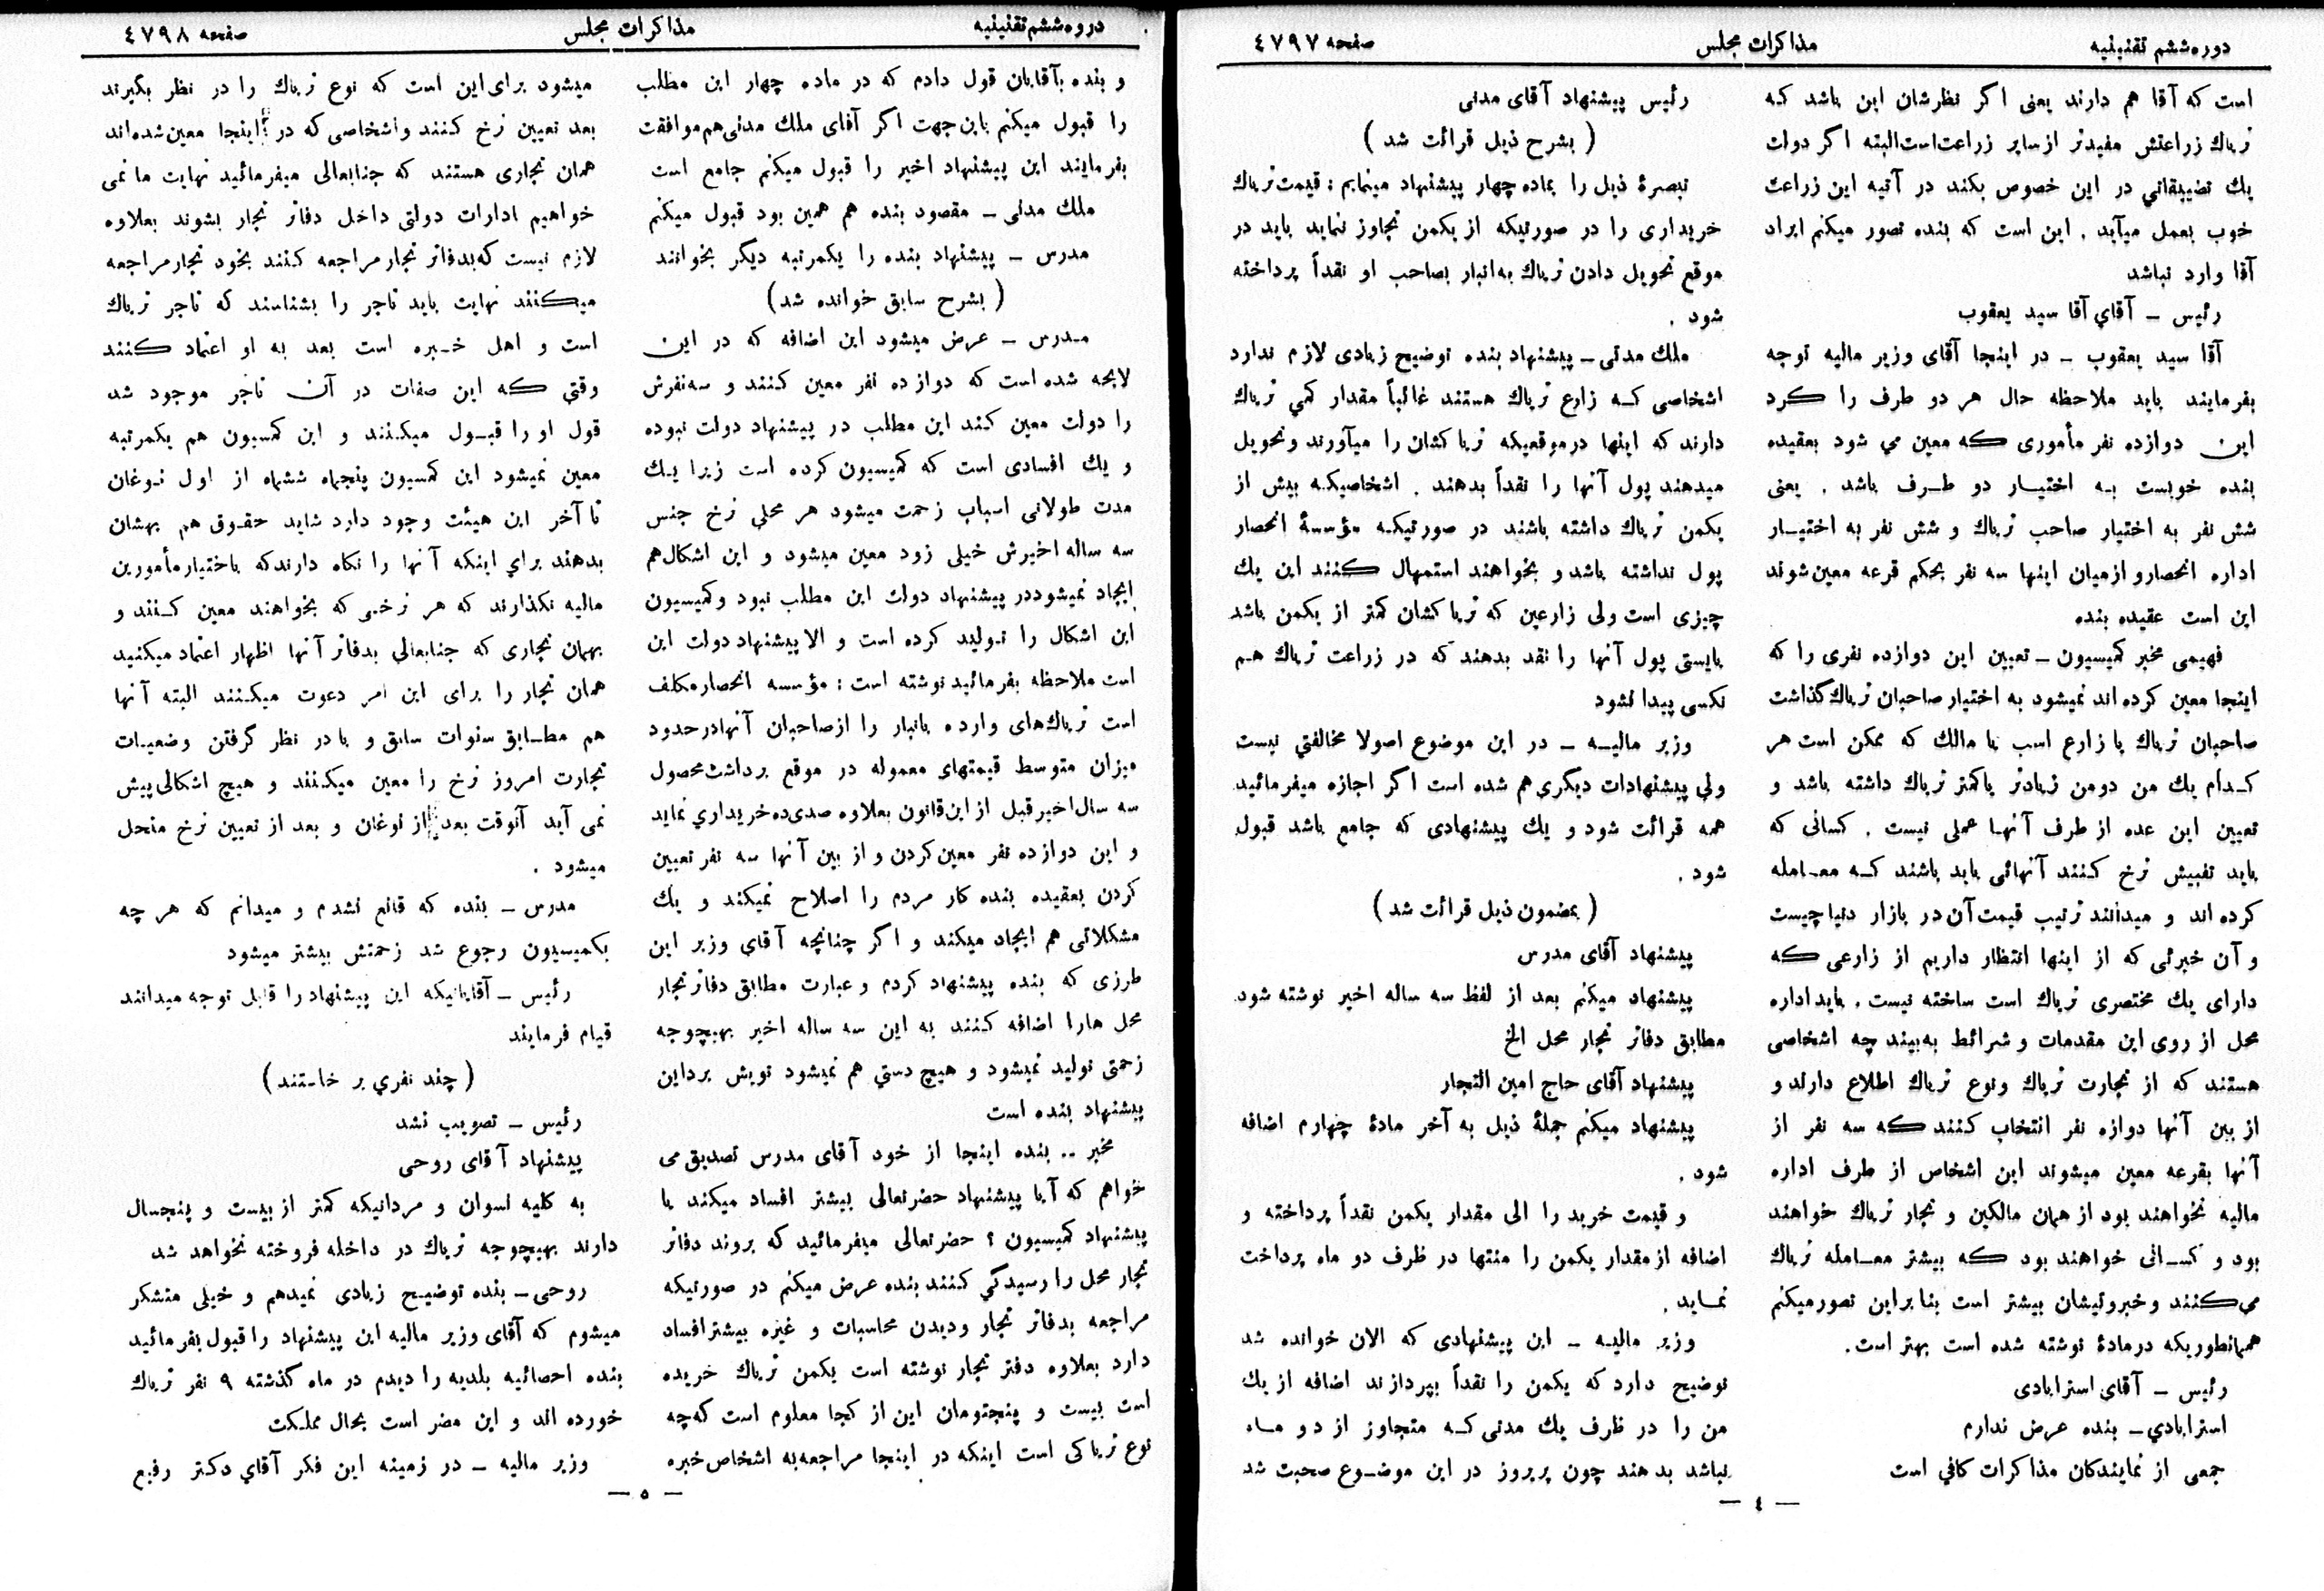 دوره ششم تقنینیه
مذاکرات مجلس
صفحه ٤٧٩٧
است که آقا هم دارند یعنی اگر نظرشان این باشد که
تریاك زراعتش مفیدتر از سایر زراعت‌است‌البته اگر دولت
یك تضییقاتی در این خصوص بکند در آتیه این زراعت
خوب بعمل میآید . این است که بنده تصور میکنم ایراد
آقا وارد نباشد
رئیس ـ آقای آقا سید یعقوب
آقا سید یعقوب ـ در اینجا آقای وزیر مالیه توجه
بفرمایند باید ملاحظه حال هر دو طرف را کرد
این دوازده نفر مأموری که معین می شود بعقیده
بنده خوبست به اختیار دو طرف باشد . یعنی
شش نفر به اختیار صاحب تریاك و شش نفر به اختیار
اداره انحصار و ازمیان اینها سه نفر بحکم قرعه معین‌شوند
این است عقیده بنده
فهیمی مخبر کمیسیون ـ تعیین این دوازده نفری را که
اینجا معین کرده‌اند نمیشود به اختیار صاحبان تریاك گذاشت
صاحبان تریاك یا زارع اسب یا مالك که ممکن است هر
کدام یك من دومن زیادتر یا کمتر تریاك داشته باشد و
تعیین این عده از طرف آنها عملی نیست . کسانی که
باید تفبیش نرخ کنند آنهائی باید باشند که معامله
کرده اند و میدانند ترتیب قیمت آن در بازار دنیا چیست
و آن خبرئی که از اینها انتظار داریم از زارعی که
دارای یك مختصری تریاك است ساخته نیست . باید اداره
محل از روی این مقدمات و شرائط به‌بیند چه اشخاصی
هستند که از تجارت تریاك ونوع تریاك اطلاع دارند و
از بین آنها دوازه نفر انتخاب کنند که سه نفر از
آنها بقرعه معین میشوند این اشخاص از طرف اداره
مالیه نخواهند بود از همان مالکین و تجار تریاك خواهند
بود و کسانی خواهند بود که بیشتر معامله تریاك
می‌کنند و خبرویتشان بیشتر است بنا براین تصورمیکنم
همانطوریکه درمادهٔ نوشته شده است بهتر است .
رئیس ـ آقای استرابادی
استرابادی ـ بنده عرض ندارم
جمعی از نمایندکان مذاکرات کافی است
رئیس پیشنهاد آقای مدنی
( بشرح ذیل قرائت شد )
تبصرهٔ ذیل را بماده چهار پیشنهاد مینمایم : قیمت‌تریاك
خریداری را در صورتیکه از یکمن تجاوز ننماید باید در
موقع تحویل دادن تریاك به‌انبار بصاحب او نقداً پرداخته
شود .
ملك مدنی ـ پیشنهاد بنده توضیح زیادی لازم ندارد
اشخاصی که زارع تریاك هستند غالباً مقدار کمی تریاك
دارند که اینها درموقعیکه تریاکشان را میآورند و تحویل
میدهند پول آنها را نقداً بدهند . اشخاصیکه بیش از
یکمن تریاك داشته باشند در صورتیکه مؤسسهٔ انحصار
پول نداشته باشد و بخواهند استمهال کنند این یك
چیزی است ولی زارعین که تریاکشان کمتر از یکمن باشد
بایستی پول آنها را نقد بدهند که در زراعت تریاك هم
نکسی پیدا نشود
وزیر مالیه ـ در این موضوع اصولا مخالفتی نیست
ولی پیشنهادات دیگری هم شده است اگر اجازه میفرمائید
همه قرائت شود و یك پیشنهادی که جامع باشد قبول
شود .
( بمضمون ذیل قرائت شد )
پیشنهاد آقای مدرس
پیشنهاد میکنم بعد از لفظ سه ساله اخیر نوشته شود
مطابق دفاتر تجار محل الخ
پیشنهاد آقای حاج امین التجار
پیشنهاد میکنم جملهٔ ذیل به آخر مادهٔ چهارم اضافه
شود .
و قیمت خرید را الی مقدار یکمن نقداً پرداخته و
اضافه از مقدار یکمن را منتها در ظرف دو ماه پرداخت
نماید .
وزیر مالیه ـ این پیشنهادی که الان خوانده شد
توضیح دارد که یکمن را نقداً بپردازند اضافه از یك
من را در ظرف یك مدتی که متجاوز از دو ماه
نباشد بدهند چون پریروز در این موضوع صحبت شد
— ٤ —
دروه ششم تقنینیه
مذاکرات مجلس
صفحه ٤٧٩٨
و بنده بآقایان قول دادم که در ماده چهار این مطلب
را قبول میکنم باین‌جهت اگر آقای ملك مدنی‌هم‌موافقت
بفرمایند این پیشنهاد اخیر را قبول میکنم جامع است
ملك مدنی ـ مقصود بنده هم همین بود قبول میکنم
مدرس ـ پیشنهاد بنده را یکمرتبه دیگر بخوانند
( بشرح سابق خوانده شد )
مدرس ـ عرض میشود این اضافه که در این
لایحه شده است که دوازده نفر معین کنند و سه‌نفرش
را دولت معین کند این مطلب در پیشنهاد دولت نبوده
و یك افسادی است که کمیسیون کرده است زیرا یك
مدت طولانی اسباب زحمت میشود هر محلی نرخ جنس
سه ساله اخیرش خیلی زود معین میشود و این اشکال‌هم
ایجاد نمیشوددر پیشنهاد دولت این مطلب نبود وکمیسیون
این اشکال را تولید کرده است و الا پیشنهاد دولت این
است ملاحظه بفرمائید نوشته است : مؤسسه انحصار مکلف
است تریاك‌های وارده بانبار را ازصاحبان آنهادرحدود
میزان متوسط قیمتهای معموله در موقع برداشت‌محصول
سه سال‌اخیرقبل از این‌قانون بعلاوه صدی‌ده خریداری نماید
و این دوازده نفر معین کردن و از بین آنها سه نفر تعیین
کردن بعقیده بنده کار مردم را اصلاح نمیکند و یك
مشکلاتی هم ایجاد میکند و اگر چنانچه آقای وزیر این
طرزی که بنده پیشنهاد کردم و عبارت مطابق دفاتر تجار
محل هارا اضافه کنند به این سه ساله اخیر بهیچوجه
زحمتی تولید نمیشود و هیچ دستی هم نمیشود تویش برداین
پیشنهاد بنده است
مخبر .. بنده اینجا از خود آقای مدرس تصدیق می
خواهم که آیا پیشنهاد حضرتعالی بیشتر افساد میکند یا
پیشنهاد کمیسیون ؟ حضرتعالی میفرمائید که بروند دفاتر
تجار محل را رسیدگی کنند بنده عرض میکنم در صورتیکه
مراجعه بدفاتر تجار ودیدن محاسبات و غیره بیشترافساد
دارد بعلاوه دفتر تجار نوشته است یکمن تریاك خریده
است بیست و پنجتومان این از کجا معلوم است که‌چه
نوع تریاکی است اینکه در اینجا مراجعه‌به اشخاص خبره
میشود برای این است که نوع تریاك را در نظر بگیرند
بعد تعیین نرخ کنند واشخاصی که در اینجا معین‌شده‌اند
همان تجاری هستند که جنابعالی میفرمائید نهایت ما نمی
خواهیم ادارات دولتی داخل دفاتر تجار بشوند بعلاوه
لازم نیست که‌بدفاتر تجارمراجعه کنند بخود تجارمراجعه
میکنند نهایت باید تاجر را بشناسند که تاجر تریاك
است و اهل خبره است بعد به او اعتماد کنند
وقتی که این صفات در آن تاجر موجود شد
قول او را قبول میکنند و این کمسیون هم یکمرتبه
معین نمیشود این کمسیون پنجماه ششماه از اول نوغان
تا آخر این هیئت وجود دارد شاید حقوق هم بهشان
بدهند برای اینکه آنها را نگاه دارندکه باختیار مأمورین
مالیه نگذارند که هر نرخی که بخواهند معین کنند و
بهمان تجاری که جنابعالی بدفاتر آنها اظهار اعتماد میکنید
همان تجار را برای این امر دعوت میکنند البته آنها
هم مطابق سنوات سابق و با در نظر گرفتن وضعیات
تجارت امروز نرخ را معین میکنند و هیچ اشکالی پیش
نمی آید آنوقت بعد از نوغان و بعد از تعیین نرخ منحل
میشود .
مدرس ـ بنده که قانع نشدم و میدانم که هر چه
بکمیسیون رجوع شد زحمتش بیشتر میشود
رئیس ـ آقایانیکه این پیشنهاد را قابل توجه میدانند
قیام فرمایند
( چند نفری بر خاستند )
رئیس ـ تصویب نشد
پیشنهاد آقای روحی
به کلیه نسوان و مردانیکه کمتر از بیست و پنجسال
دارند بهیچوجه تریاك در داخله فروخته نخواهد شد
روحی ـ بنده توضیح زیادی نمیدهم و خیلی متشکر
میشوم که آقای وزیر مالیه این پیشنهاد را قبول بفرمائید
بنده احصائیه بلدیه را دیدم در ماه گذشته ٩ نفر تریاك
خورده اند و این مضر است بحال مملکت
وزیر مالیه ـ در زمینه این فکر آقای دکتر رفیع
— ٥ —